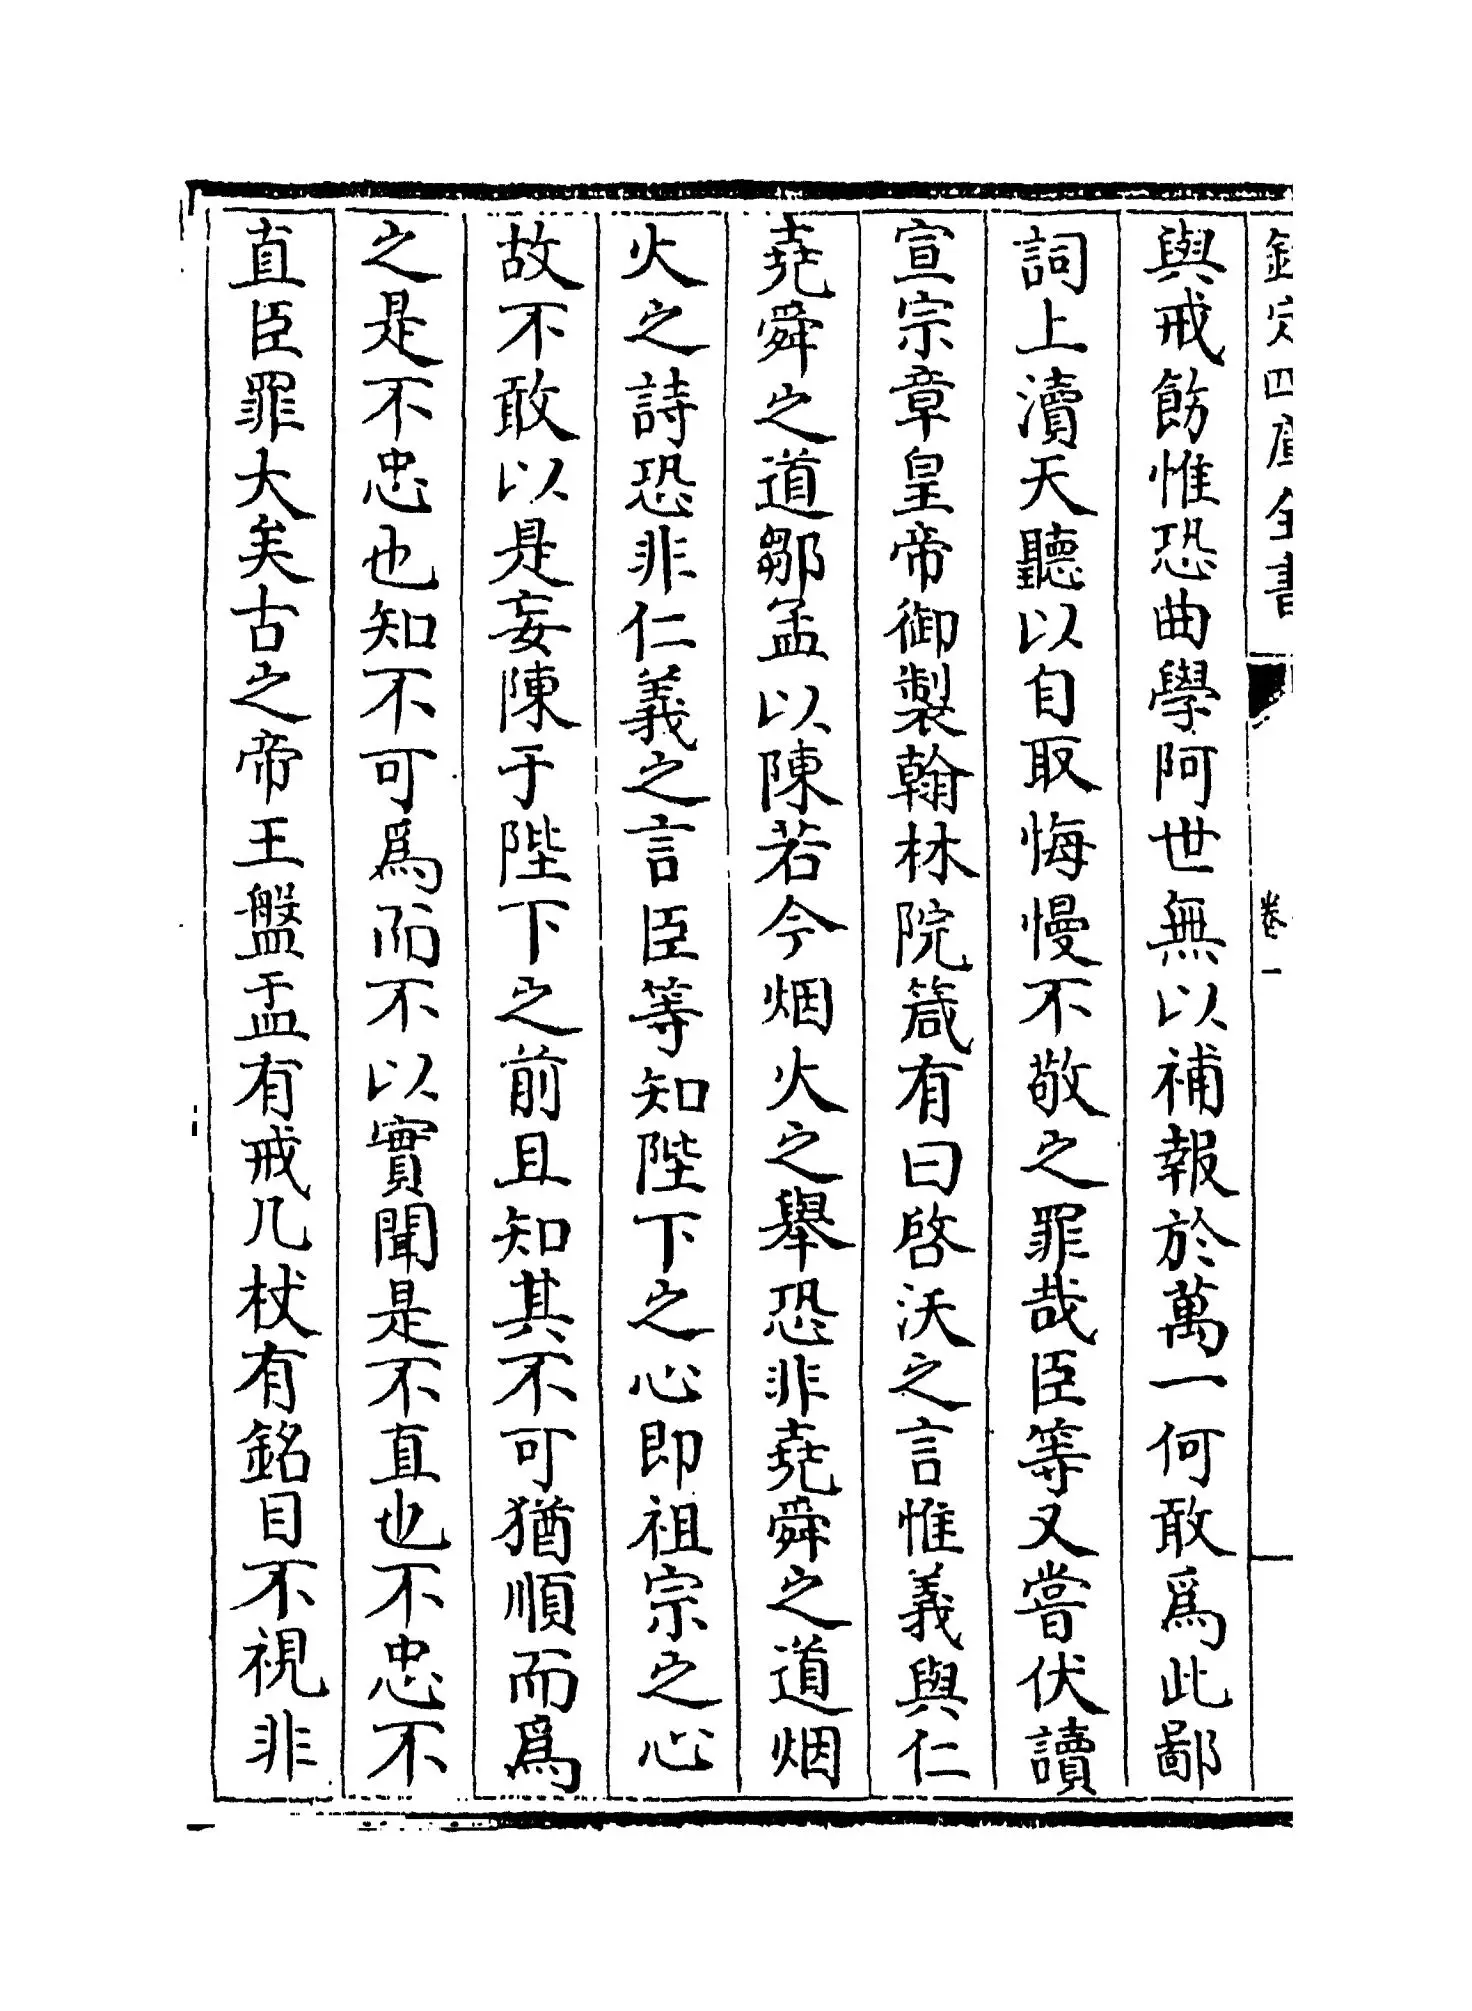 欽定四庫全書
卷一
與戒飭惟恐曲學阿世無以補報於萬一何敢爲此鄙
詞上瀆天聽以自取侮慢不敬之罪哉臣等又嘗伏讀
宣宗章皇帝御製翰林院箴有曰啓沃之言惟義與仁
堯舜之道鄒孟以陳若今烟火之舉恐非堯舜之道烟
火之詩恐非仁義之言臣等知陛下之心即祖宗之心
故不敢以是妄陳于陛下之前且知其不可猶順而爲
之是不忠也知不可爲而不以實聞是不直也不忠不
直臣罪大矣古之帝王盤盂有戒几杖有銘目不視非